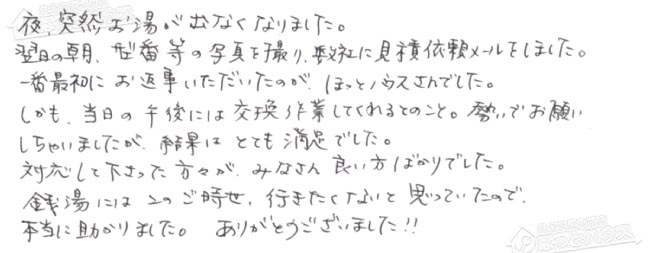 夜、突然お湯が出なくなりました。
翌日の朝、型番等の写真を撮り、数社に見積依頼メールをしました。
一番最初にお返事いただいたのが、ほっとハウスさんでした。
しかも、当日の午後には交換作業してくれるとのこと。勢いでお願い
しちゃいましたが、結果はとても満足でした。
対応して下さった方々が、みなさん良い方ばかりでした。
銭湯にはこのご時世、行きたくないと思っていたので、
本当に助かりました。 ありがとうございました!!